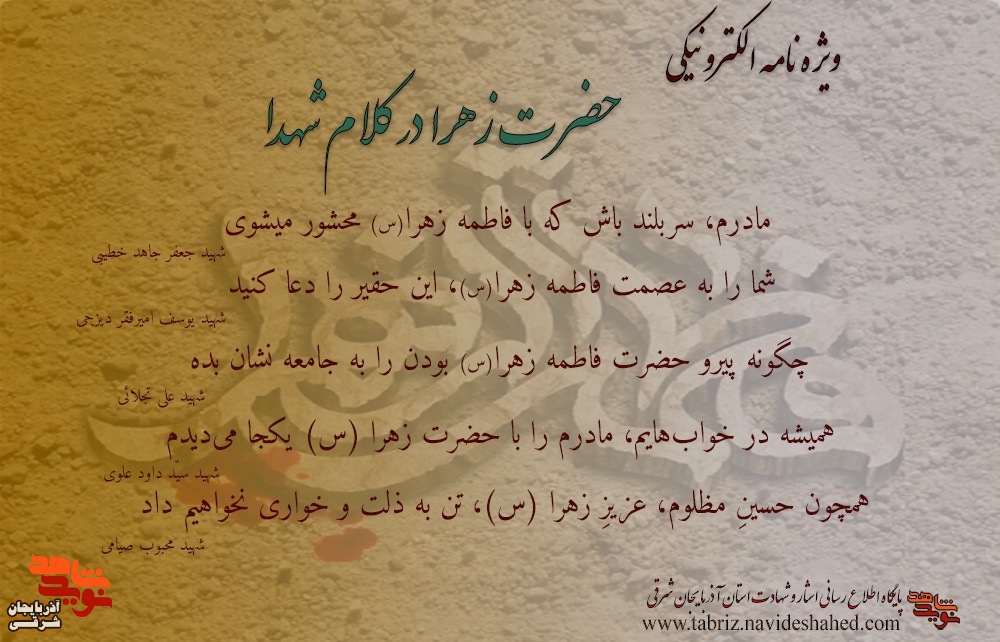 ویژه نامه الکترونیکی
حضرت زهرا در کلام شهدا
مادرم، سربلند باش که با فاطمه زهرا(س) محشور میشوی
شهید جعفر جاهد خطیبی
شما را به عصمت فاطمه زهرا(س)، این حقیر را دعا کنید
شهید یوسف امیرفقر دیزجی
چگونه پیرو حضرت فاطمه زهرا(س) بودن را به جامعه نشان بده
شهید علی تجلائی
همیشه در خواب‌هایم، مادرم را با حضرت زهرا (س) یکجا می‌دیدم
شهید سیّد داود علوی
همچون حسینِ مظلوم، عزیزِ زهرا (س)، تن به ذلت و خواری نخواهیم داد
شهید محبوب صیامی
نوید شاهد
آذربایجان
شرقی
پایگاه اطلاع رسانی ایثار و شهادت استان آذربایجان شرقی
www.tabriz.navideshahed.com
نوید شاهد